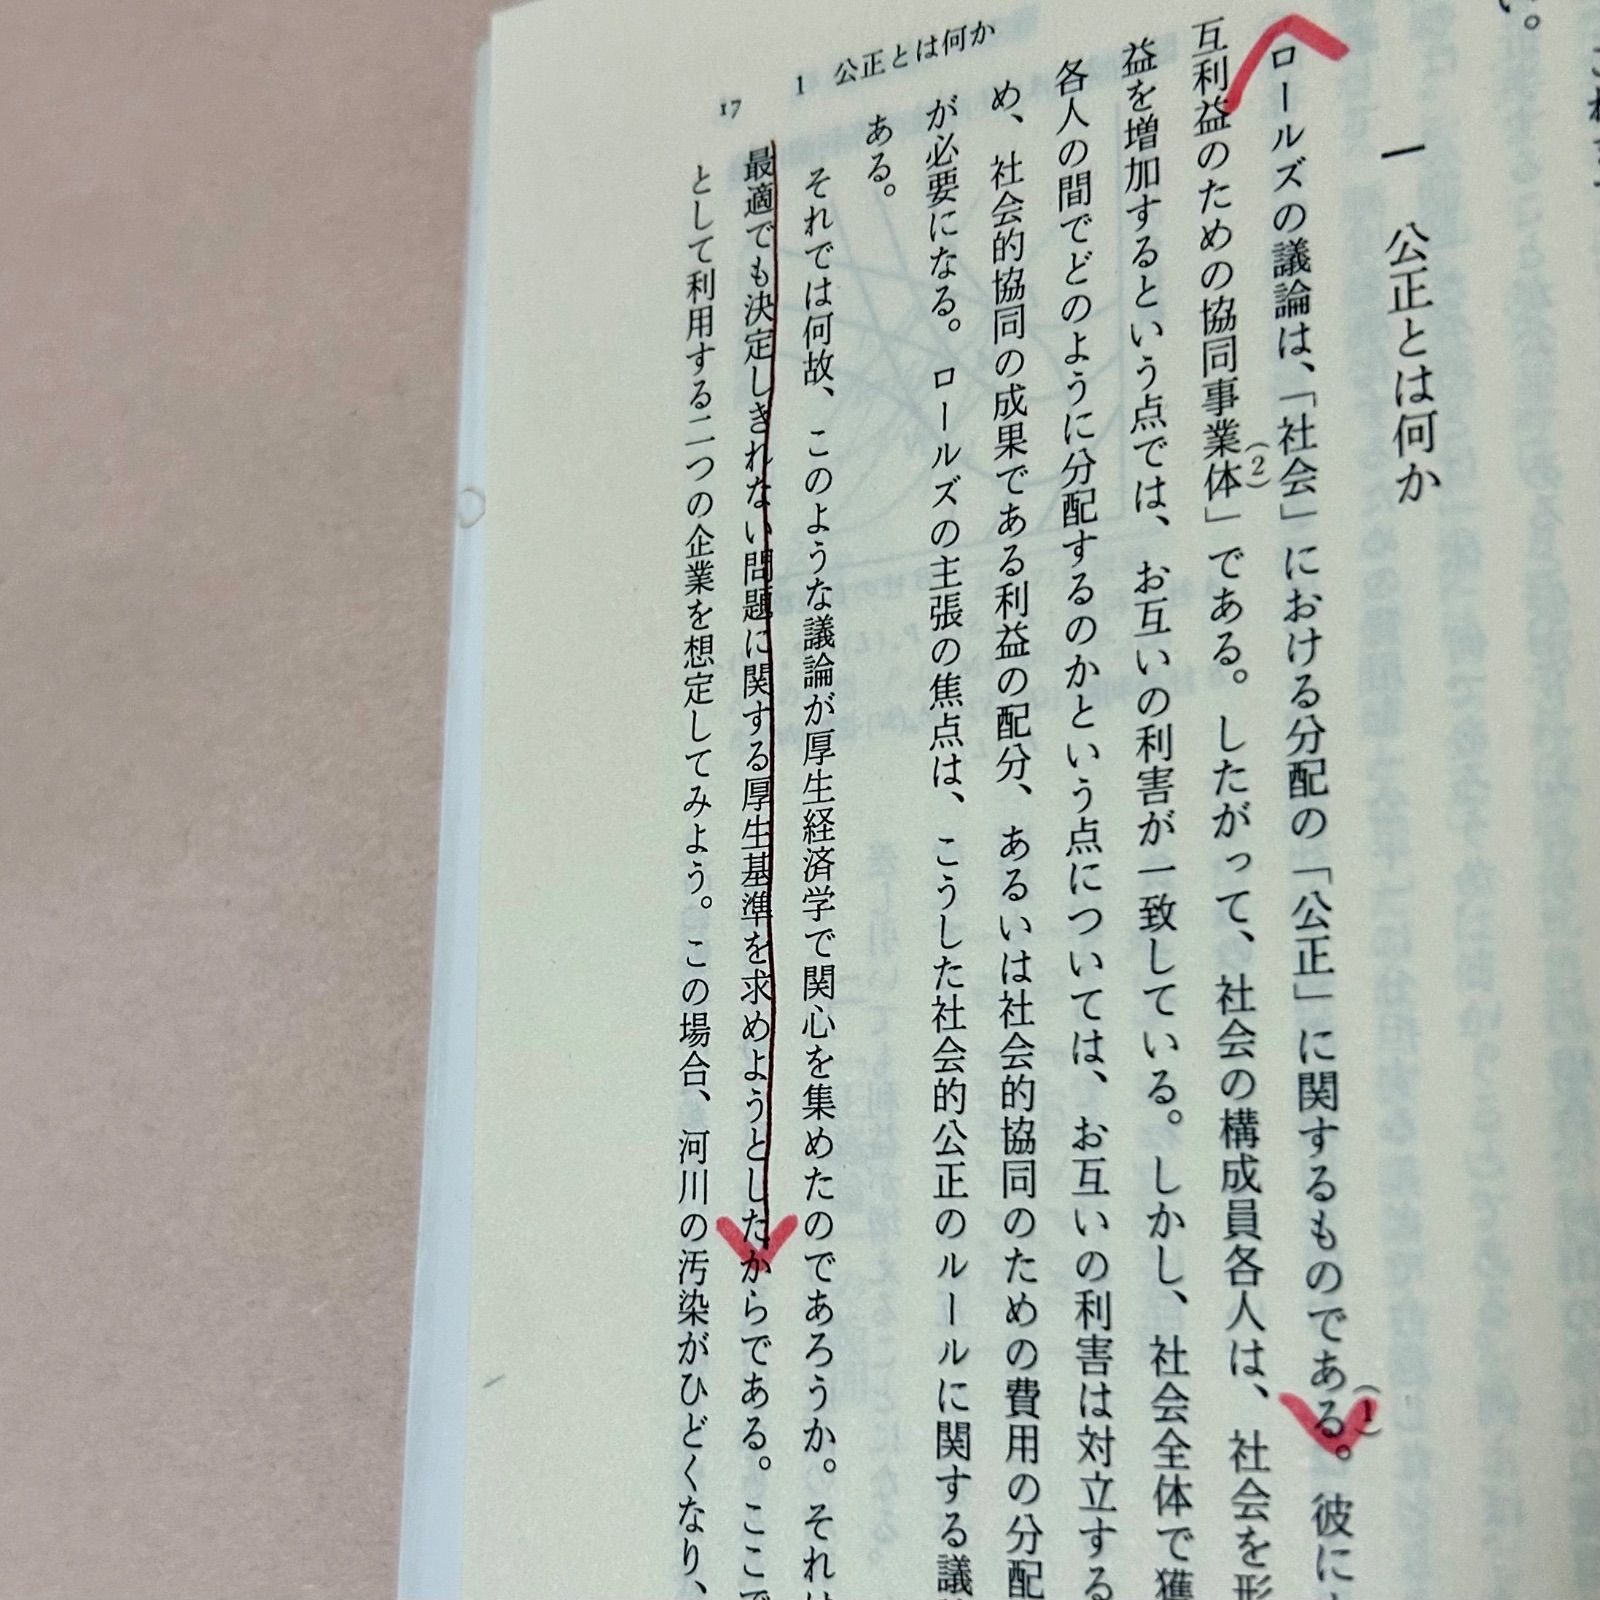 1 公正とは何か
17
一 公正とは何か
ロールズの議論は、「社会」における分配の「公正」に関するものである(1)。彼に
互利益のための協同事業体(2)」である。したがって、社会の構成員各人は、社会を形
益を増加するという点では、お互いの利害が一致している。しかし、社会全体で獲
各人の間でどのように分配するのかという点については、お互いの利害は対立する
め、社会的協同の成果である利益の配分、あるいは社会的協同のための費用の分配
が必要になる。ロールズの主張の焦点は、こうした社会的公正のルールに関する議
ある。
それでは何故、このような議論が厚生経済学で関心を集めたのであろうか。それは
最適でも決定しきれない問題に関する厚生基準を求めようとしたからである。ここで
として利用する二つの企業を想定してみよう。この場合、河川の汚染がひどくなり、